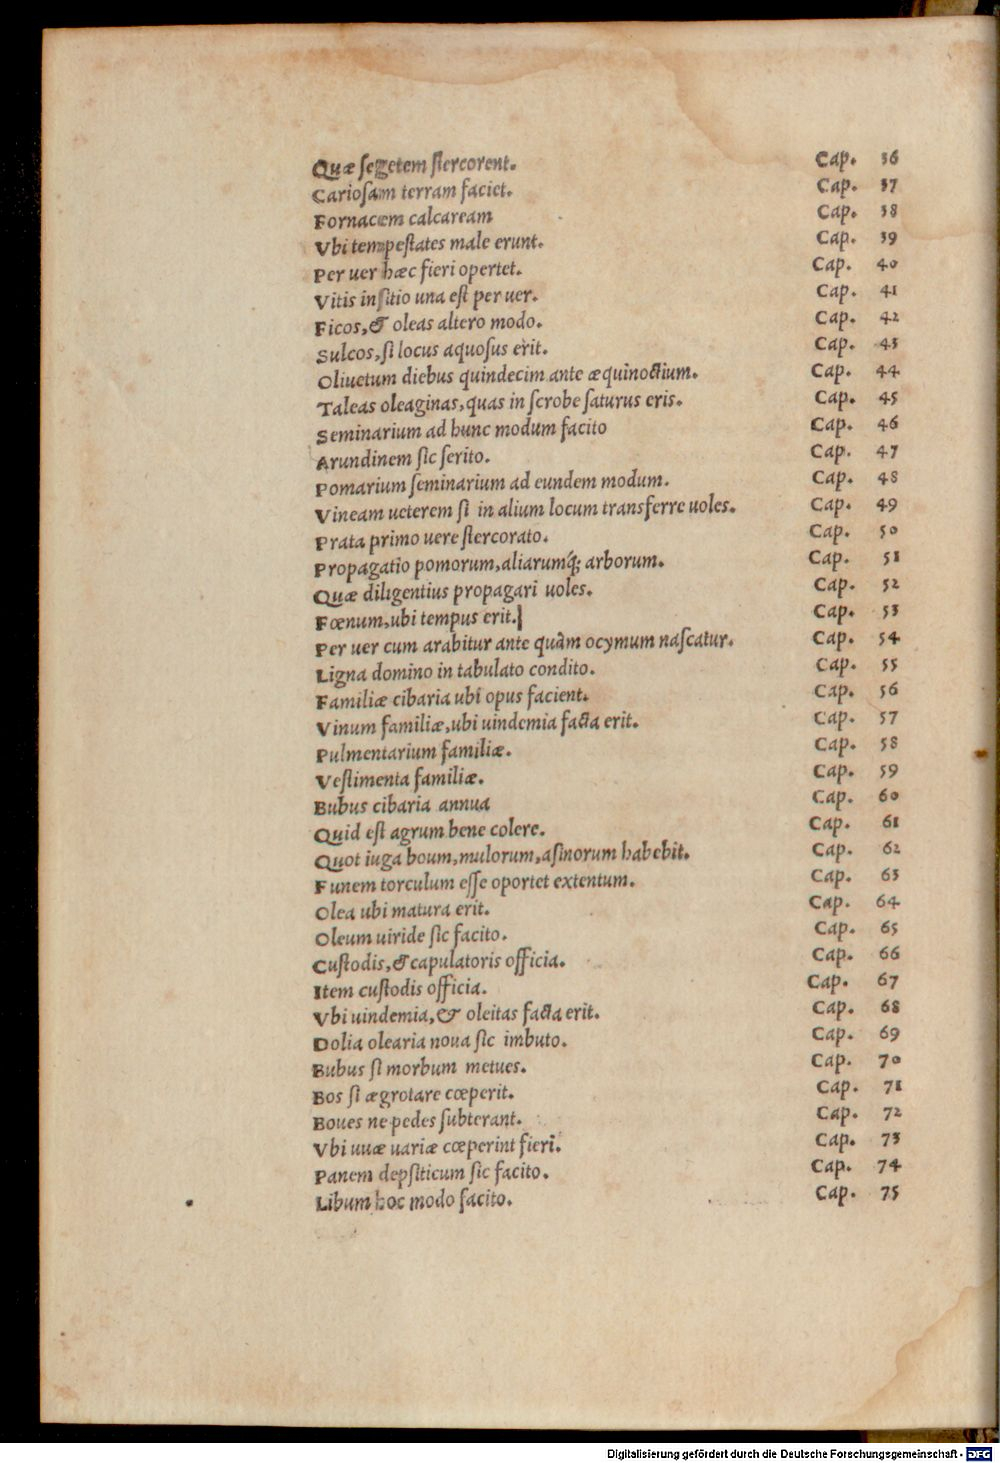 Quæ segetem stercorent. Cap. 36
Cariosam terram faciet. Cap. 37
Fornacem calcaream Cap. 38
Vbi tempestates male erunt. Cap. 39
Per uer hæc fieri opertet. Cap. 40
Vitis insitio una est per uer. Cap. 41
Ficos,& oleas altero modo. Cap. 42
Sulcos,si locus aquosus erit. Cap. 43
Oliuetum diebus quindecim ante æquinoctium. Cap. 44
Taleas oleaginas,quas in scrobe saturus eris. Cap. 45
Seminarium ad hunc modum facito Cap. 46
Arundinem sic serito. Cap. 47
Pomarium seminarium ad eundem modum. Cap. 48
Vineam ueterem si in alium locum transferre uoles. Cap. 49
Prata primo uere stercorato. Cap. 50
Propagatio pomorum,aliarumq́; arborum. Cap. 51
Quæ diligentius propagari uoles. Cap. 52
Fœnum,ubi tempus erit. Cap. 53
Per uer cum arabitur ante quàm ocymum nascatur. Cap. 54
Ligna domino in tabulato condito. Cap. 55
Familiæ cibaria ubi opus facient. Cap. 56
Vinum familiæ,ubi uindemia facta erit. Cap. 57
Pulmentarium familiæ. Cap. 58
Vestimenta familiæ. Cap. 59
Bubus cibaria annua Cap. 60
Quid est agrum bene colere. Cap. 61
Quot iuga boum,mulorum,asinorum habebit. Cap. 62
Funem torculum esse oportet extentum. Cap. 63
Olea ubi matura erit. Cap. 64
Oleum uiride sic facito. Cap. 65
Custodis,& capulatoris officia. Cap. 66
Item custodis officia. Cap. 67
Vbi uindemia,& oleitas facta erit. Cap. 68
Dolia olearia noua sic imbuto. Cap. 69
Bubus si morbum metues. Cap. 70
Bos si ægrotare cœperit. Cap. 71
Boues ne pedes subterant. Cap. 72
Vbi uuæ uariæ cœperint fieri. Cap. 73
Panem depsiticum sic facito. Cap. 74
Libum hoc modo facito. Cap. 75
Digitalisierung gefördert durch die Deutsche Forschungsgemeinschaft - DFG